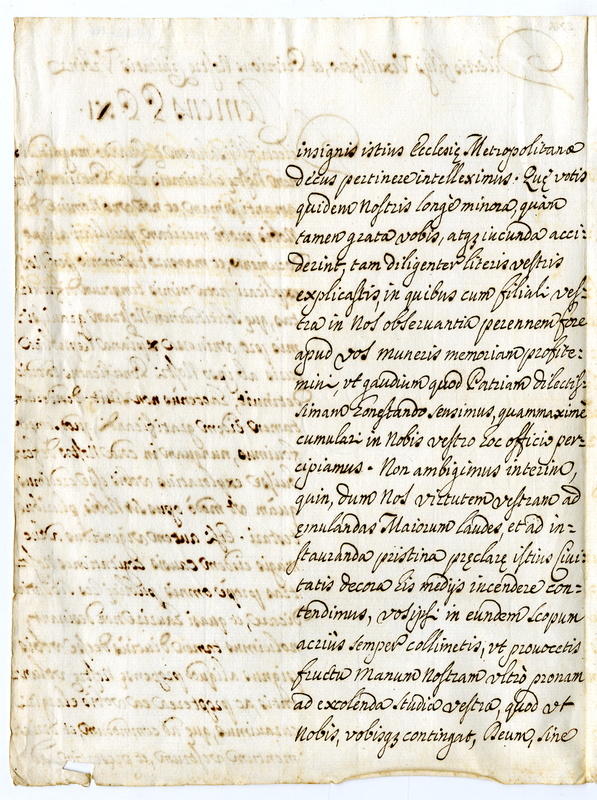 insignis istius Ecclesię Metropolitanæ
decus pertinere intelleximus. Quę votis
quidem Nostris longè minora, quam
tamen grata vobis, atq₃ iucunda acci-
derint, tam diligenter literis vestris
explicastis, in quibus cum filiali ves-
tra in Nos observantia perennem fore
apud vos muneris memoriam profite-
mini, vt gaudium quod Patriam dilectis-
simam honestando sensimus, quammaximè
cumulari in Nobis vestro hoc officio per-
cipiamus. Non ambigimus interim,
quin, dum Nos virtutem vestram ad
ęmulandas Maiorum laudes, et ad in-
stauranda pristina pręclarę istius Civi-
tatis decora his medijs incendere con-
tendimus, vosipsi in eundem scopum
acriùs semper collimetis, vt provocetis
fructu Manum Nostram vltrò pronam
ad excolenda studia vestra, quod vt
Nobis, vobisq₃ contingat, Deum, sine